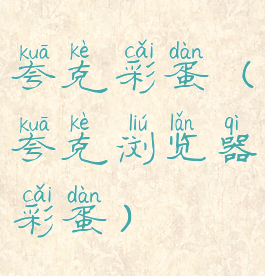 kuā kè cǎi dàn
夸克彩蛋（
kuā kè liú lǎn qì
夸克浏览器
cǎi dàn
彩蛋）